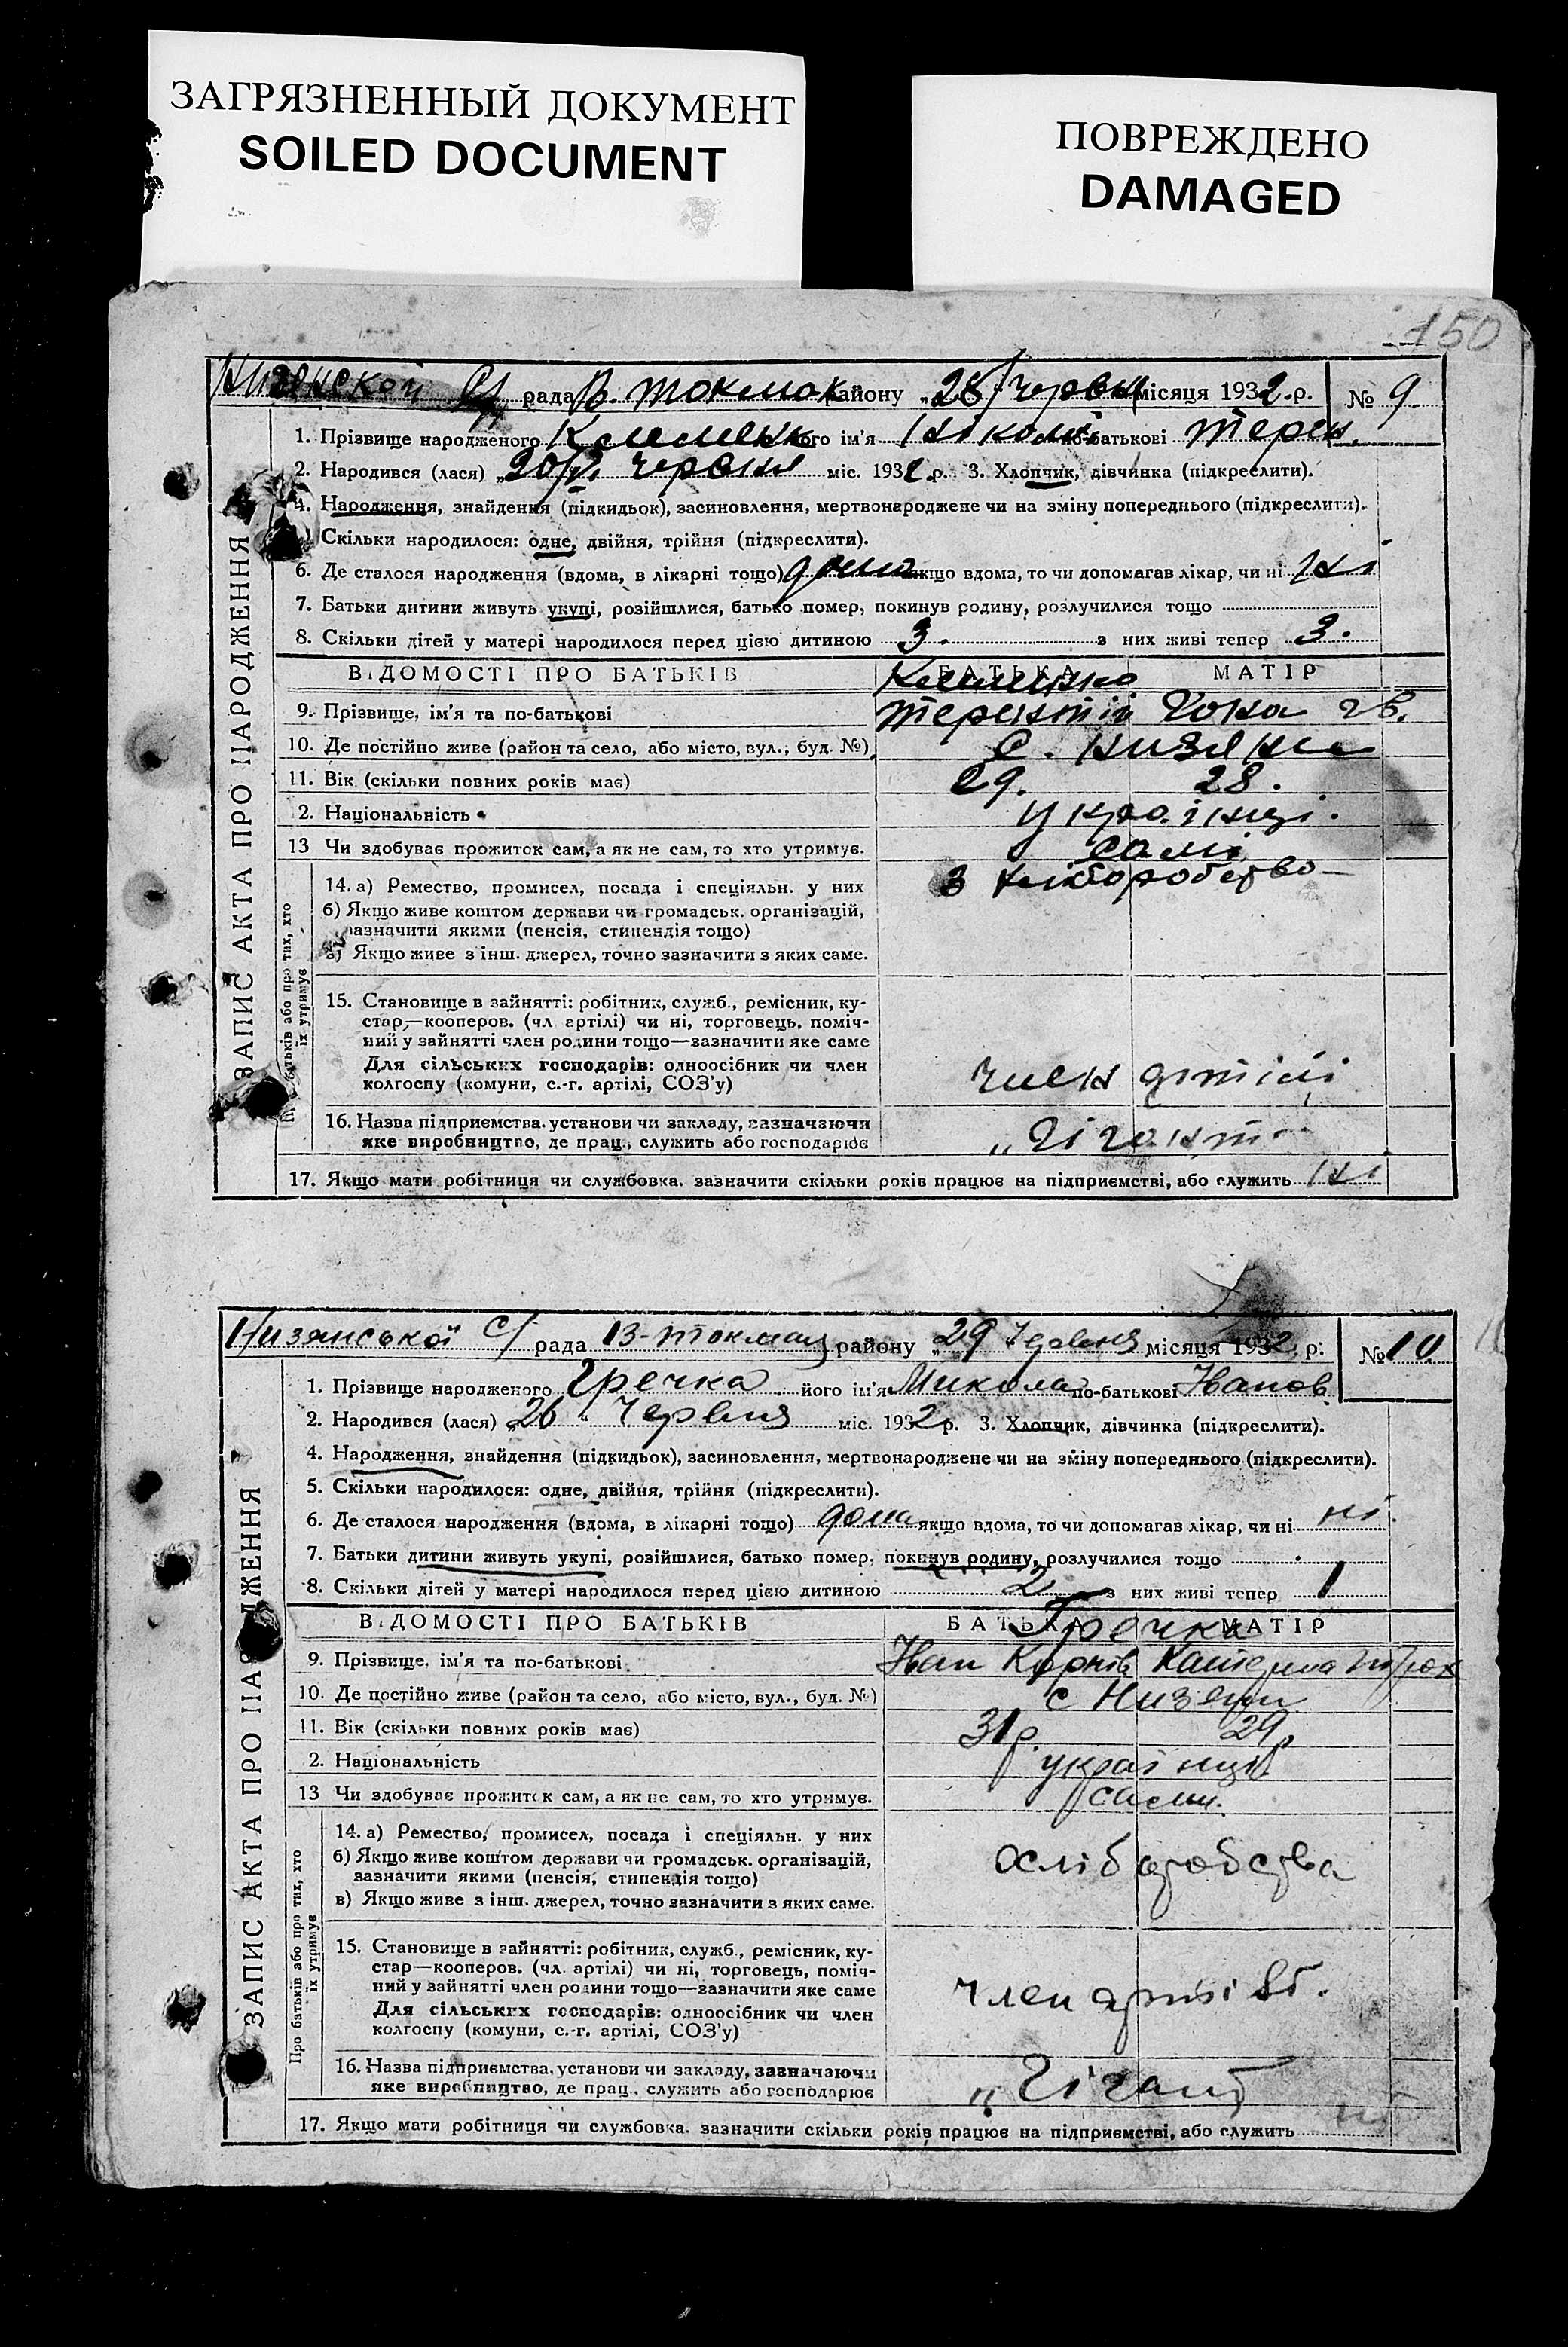 ЗАГРЯЗНЕННЫЙ ДОКУМЕНТ
SOILED DOCUMENT
ПОВРЕЖДЕНО
DAMAGED
150
С/ рада В. Токмак району „28/ червня місяця 1932 р. № 9.
1. Прізвище народженого його ім'я по-батькові Терен.
2. Народився (лася) „20/VI червня міс. 1932 р. 3. Хлопчик, дівчинка (підкреслити).
4. Народження, знайдення (підкидьок), засиновлення, мертвонароджене чи на зміну попереднього (підкреслити).
Скільки народилося: одне, двійня, трійня (підкреслити).
6. Де сталося народження (вдома, в лікарні тощо) дома якщо вдома, то чи допомагав лікар, чи ні ні
7. Батьки дитини живуть укупі, розійшлися, батько помер, покинув родину, розлучилися тощо
8. Скільки дітей у матері народилося перед цією дитиною 3. з них живі тепер 3.
ВІДОМОСТІ ПРО БАТЬКІВ БАТЬКА МАТІР
9. Прізвище, ім'я та по-батькові Терентій
10. Де постійно живе (район та село, або місто, вул., буд. №) с. Низяни
11. Вік (скільки повних років має) 29. 28.
2. Національність українці.
13 Чи здобуває прожиток сам, а як не сам, то хто утримує. самі
14. а) Ремество, промисел, посада і спеціяльн. у них з хліборобство
б) Якщо живе коштом держави чи громадськ. організацій,
зазначити якими (пенсія, стипендія тощо)
в) Якщо живе з інш. джерел, точно зазначити з яких саме.
15. Становище в зайнятті: робітник, служб., ремісник, ку-
стар,—кооперов. (чл. артілі) чи ні, торговець, поміч-
ний у зайнятті член родини тощо—зазначити яке саме
Для сільських господарів: одноосібник чи член
колгоспу (комуни, с.-г. артілі, СОЗ'у) член артілі
16. Назва підприємства, установи чи закладу, зазначаючи
яке виробництво, де прац., служить або господарює „Гігант
17. Якщо мати робітниця чи службовка, зазначити скільки років працює на підприємстві, або служить ні
ЗАПИС АКТА ПРО НАРОДЖЕННЯ
батьків або про тих, хто
їх утримує
Низянської С/ рада В-Токмац району „29 Червня місяця 1932 р. № 10.
1. Прізвище народженого Гречка його ім'я Микола по-батькові Іванов
2. Народився (лася) „26 " Червня міс. 1932 р. 3. Хлопчик, дівчинка (підкреслити).
4. Народження, знайдення (підкидьок), засиновлення, мертвонароджене чи на зміну попереднього (підкреслити).
5. Скільки народилося: одне, двійня, трійня (підкреслити).
6. Де сталося народження (вдома, в лікарні тощо) дома якщо вдома, то чи допомагав лікар, чи ні ні.
7. Батьки дитини живуть укупі, розійшлися, батько помер, покинув родину, розлучилися тощо
8. Скільки дітей у матері народилося перед цією дитиною 2 з них живі тепер 1
ВІДОМОСТІ ПРО БАТЬКІВ БАТЬКА МАТІР
Гречка
9. Прізвище, ім'я та по-батькові Іван Корнів Катерина
10. Де постійно живе (район та село, або місто, вул., буд. №) с Низяни
11. Вік (скільки повних років має) 31р. 29р
2. Національність українці
13 Чи здобуває прожиток сам, а як не сам, то хто утримує. сами.
14. а) Ремество, промисел, посада і спеціяльн. у них
б) Якщо живе коштом держави чи громадськ. організацій,
зазначити якими (пенсія, стипендія тощо)
в) Якщо живе з інш. джерел, точно зазначити з яких саме.
15. Становище в зайнятті: робітник, служб., ремісник, ку-
стар—кооперов. (чл. артілі) чи ні, торговець, поміч-
ний у зайнятті член родини тощо—зазначити яке саме
Для сільських господарів: одноосібник чи член
колгоспу (комуни, с.-г. артілі, СОЗ'у) член
16. Назва підприємства, установи чи закладу, зазначаючи
яке виробництво, де прац., служить або господарює „Гігант
17. Якщо мати робітниця чи службовка, зазначити скільки років працює на підприємстві, або служить ні
ЗАПИС АКТА ПРО НАРОДЖЕННЯ
Про батьків або про тих, хто
їх утримує